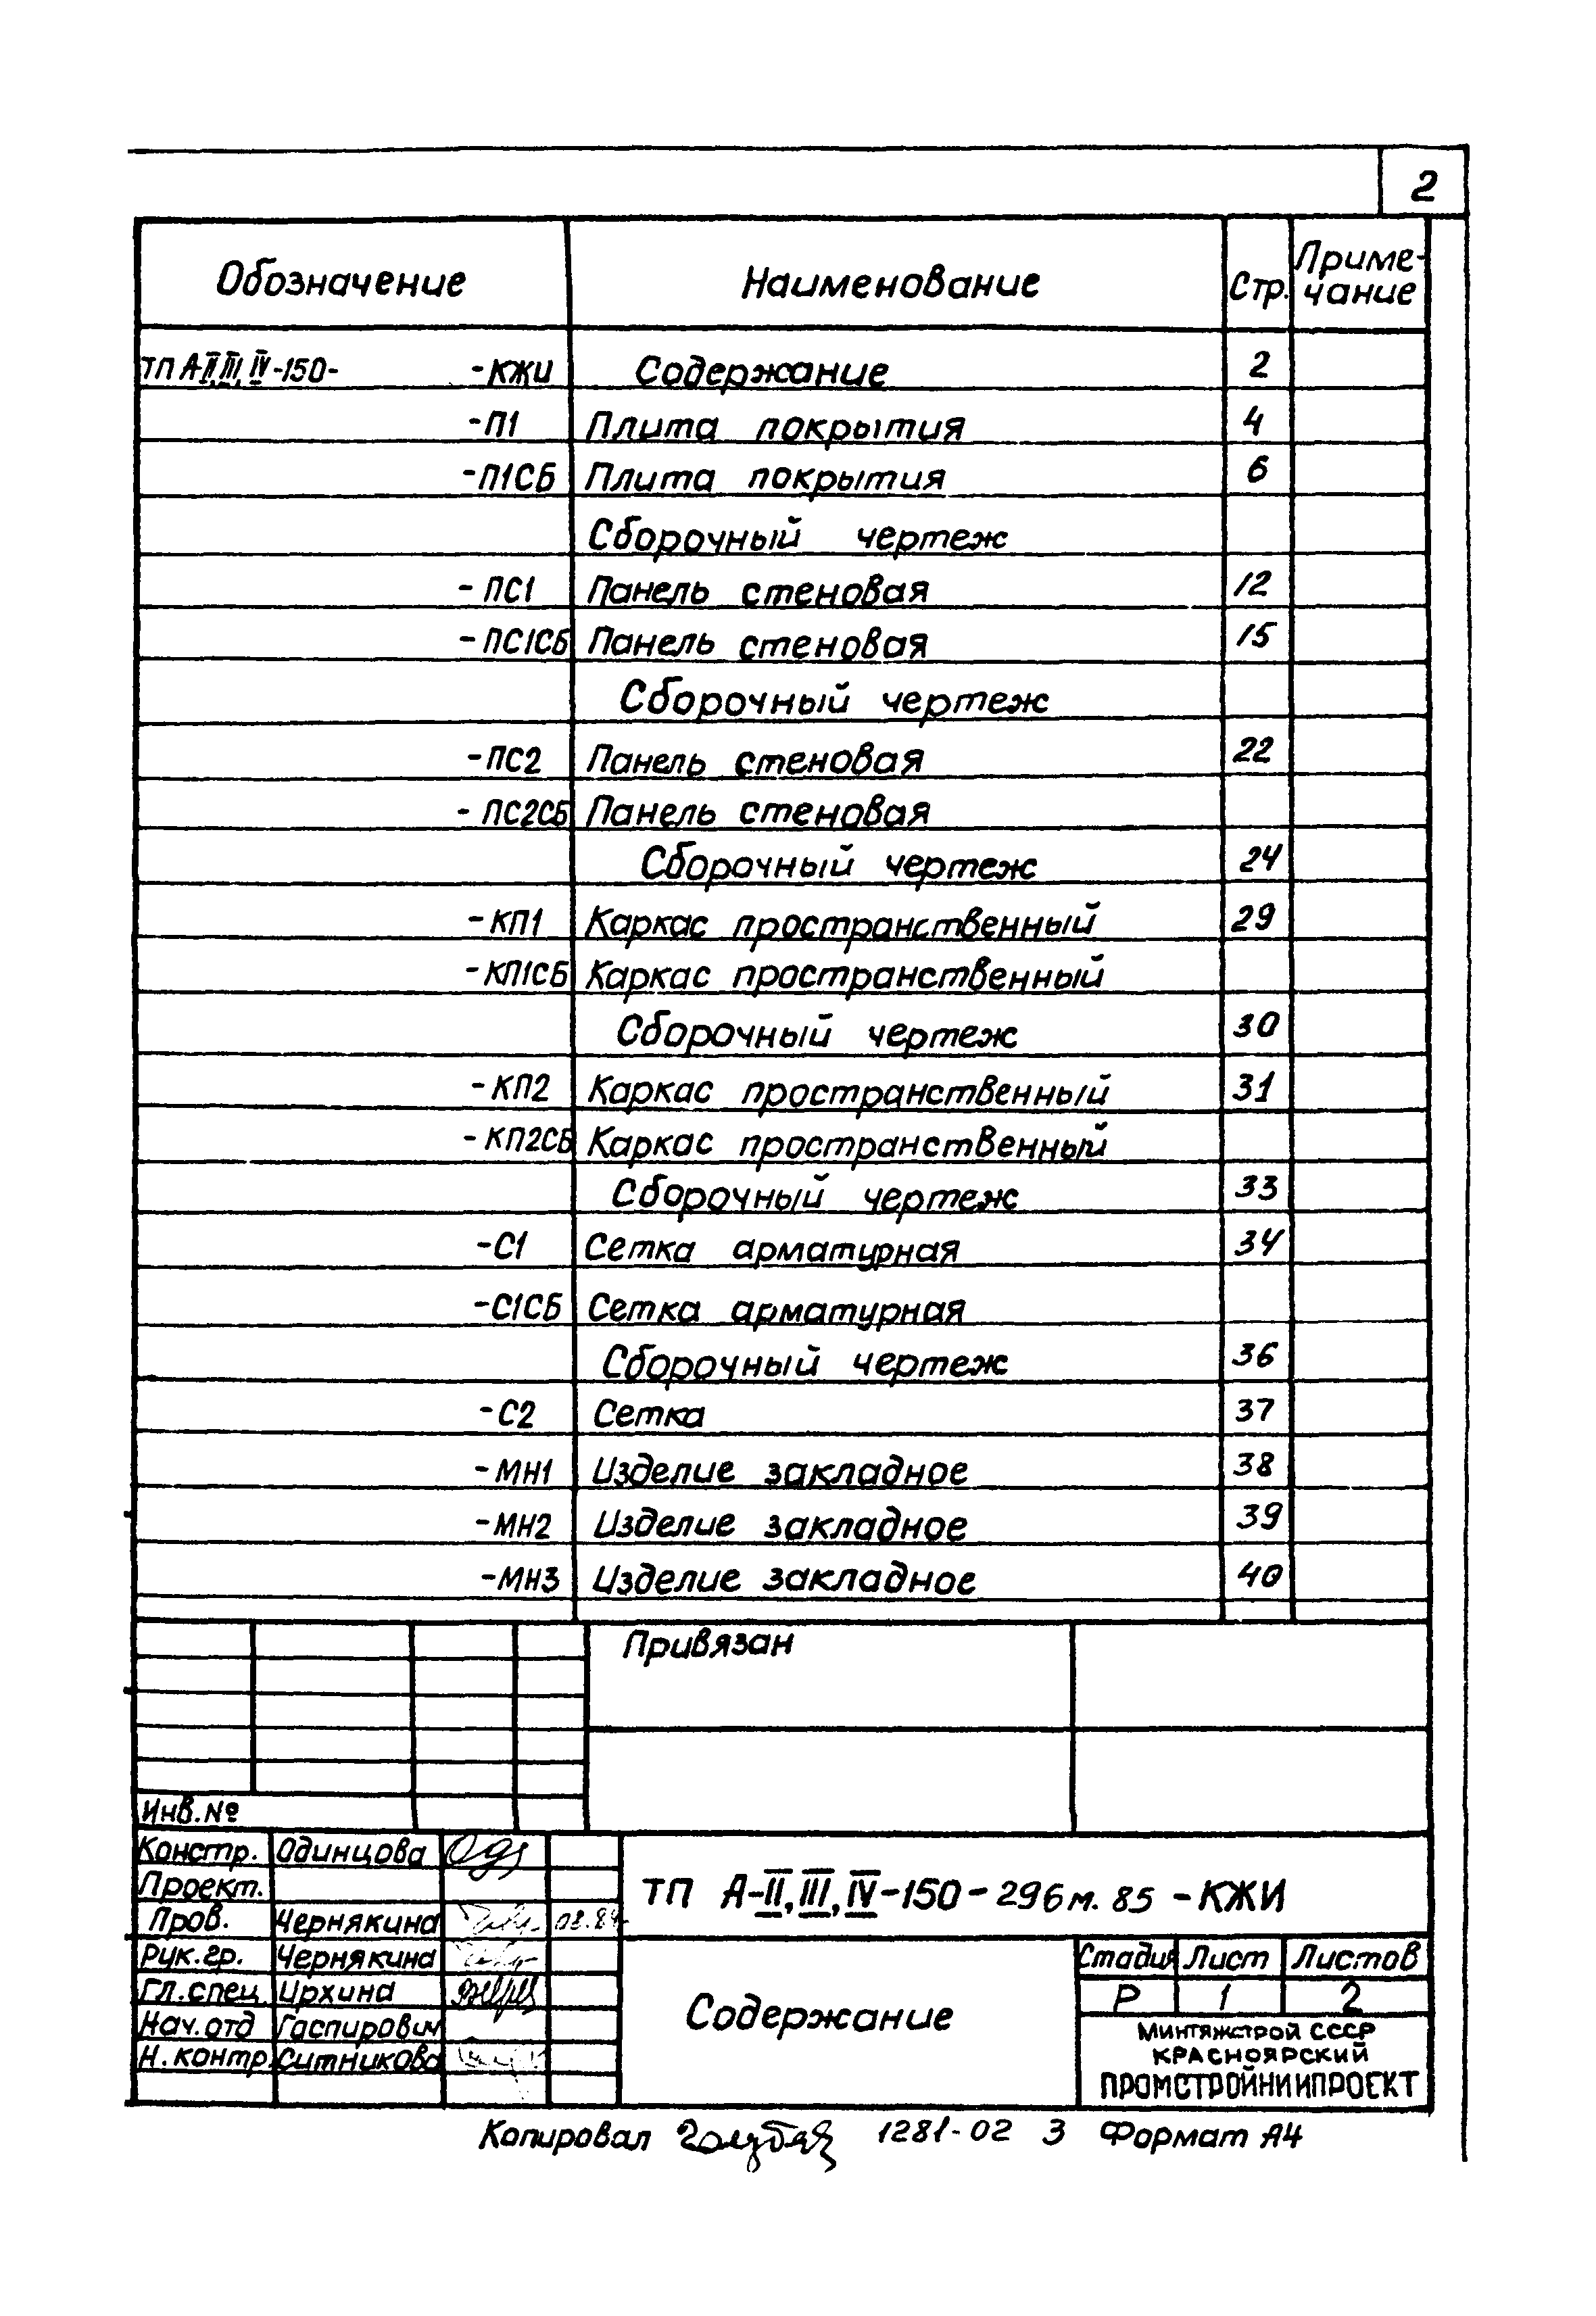 2
Обозначение Наименование Стр. Приме-
чание
ТП А-II,III,IV-150- -КЖИ Содержание 2
-П1 Плита покрытия 4
-П1СБ Плита покрытия 6
Сборочный чертеж
-ПС1 Панель стеновая 12
-ПС1СБ Панель стеновая 15
Сборочный чертеж
-ПС2 Панель стеновая 22
-ПС2СБ Панель стеновая
Сборочный чертеж 24
-КП1 Каркас пространственный 29
-КП1СБ Каркас пространственный
Сборочный чертеж 30
-КП2 Каркас пространственный 31
-КП2СБ Каркас пространственный
Сборочный чертеж 33
-С1 Сетка арматурная 34
-С1СБ Сетка арматурная
Сборочный чертеж 36
-С2 Сетка 37
-МН1 Изделие закладное 38
-МН2 Изделие закладное 39
-МН3 Изделие закладное 40
Привязан
Инв.№
Констр. Одинцова
Проект.
Пров. Чернякина 03.84
Рук.гр. Чернякина
Гл.спец. Ирхина
Нач.отд Гаспирович
Н.контр. Ситникова
ТП А-II,III,IV-150-296м.85-КЖИ
Содержание
Стадия Лист Листов
Р 1 2
Минтяжстрой СССР
КРАСНОЯРСКИЙ
ПРОМСТРОЙНИИПРОЕКТ
Копировал 1281-02 3 Формат А4